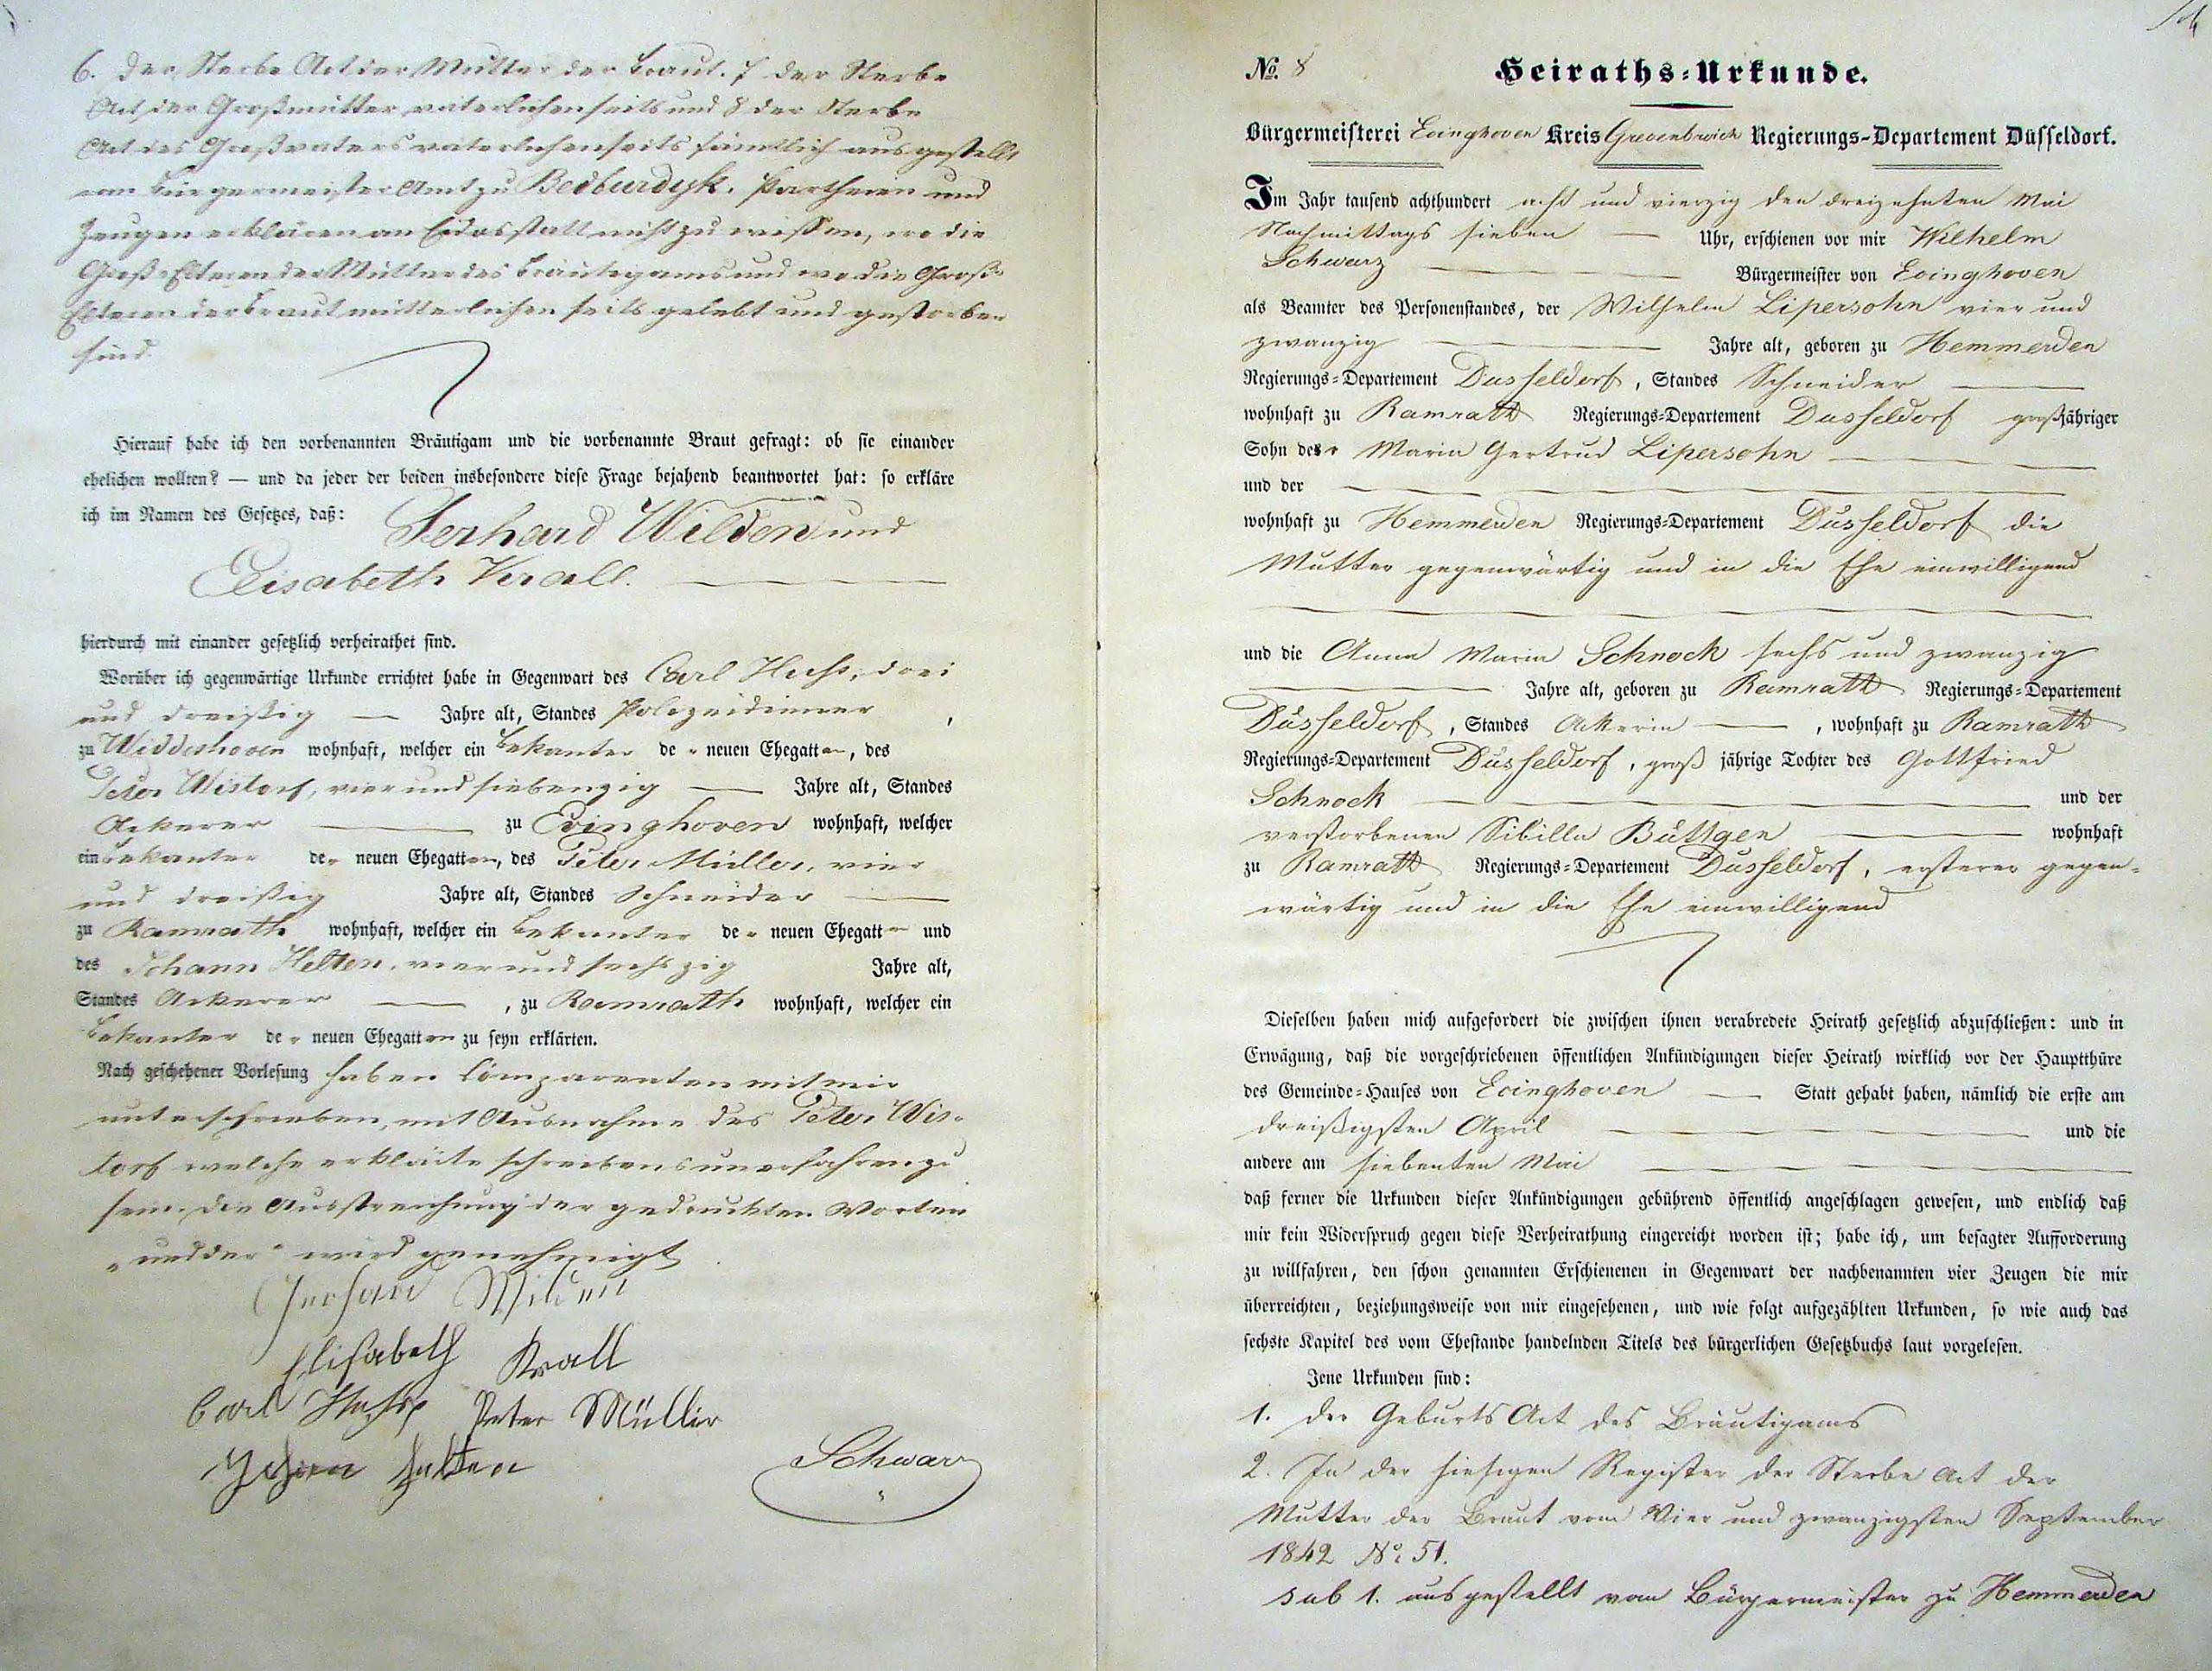 6. der Sterbe Act der Mutter der Braut. 7 der Sterbe
Act der Großmutter väterlichenseits und 8 der Sterbe
Act des Großvaters väterlichenseits sämtlich ausgestellt
vom Bürgermeister Amt zu Bedburdyk. Partheien und
Zeugen erklären an Eidesstatt nicht zu wissen, wo die
Groß-Elteren der Mutter des Bräutigams und wo die Groß-
Elteren der Braut mütterlichenseits gelebt und gestorben
sind.
Hierauf habe ich den vorbenannten Bräutigam und die vorbenannte Braut gefragt: ob sie einander
ehelichen wollten? — und da jeder der beiden insbesondere diese Frage bejahend beantwortet hat: so erkläre
ich im Namen des Gesetzes, daß: Gerhard Wilden und
Elisabeth Krall.
hierdurch mit einander gesetzlich verheirathet sind.
Worüber ich gegenwärtige Urkunde errichtet habe in Gegenwart des Carl Hess, drei
und dreißig — Jahre alt, Standes Polizeidiener ,
zu Widdeshoven wohnhaft, welcher ein Bekanter der neuen Ehegatten, des
Peter Wistorf, vier und siebenzig — Jahre alt, Standes
Ackerer — zu Evinghoven wohnhaft, welcher
ein Bekanter der neuen Ehegatten, des Peter Müller, vier
und dreißig Jahre alt, Standes Schneider —
zu Ramrath wohnhaft, welcher ein Bekanter der neuen Ehegatten und
des Johann Helten, vier und sechszig Jahre alt,
Standes Ackerer — , zu Ramrath wohnhaft, welcher ein
Bekanter der neuen Ehegatten zu seyn erklärten.
Nach geschehener Vorlesung haben Comparenten mit mir
unterschrieben, mit Ausnahme des Peter Wis-
torf welche erklärte schreibens unerfahren zu
sein. Die Ausstreichung der gedruckten Worten
„und der“ wird genehmigt
Gerhard Wilden
Elisabeth Krall
Carl Peter Müller
Johann Helten
Schwarz
No. 8 Heiraths-Urkunde.
Bürgermeisterei Evinghoven Kreis Grevenbroich Regierungs-Departement Düsseldorf.
Im Jahr tausend achthundert acht und vierzig den dreizehnten Mai
Nachmittags sieben — Uhr, erschienen vor mir Wilhelm
Schwarz — Bürgermeister von Evinghoven
als Beamter des Personenstandes, der Wilhelm Lipersohn vier und
zwanzig — Jahre alt, geboren zu Hemmerden
Regierungs-Departement Düsseldorf, Standes Schneider —
wohnhaft zu Ramrath Regierungs-Departement Düsseldorf großjähriger
Sohn der Maria Gertrud Lipersohn —
und der —
wohnhaft zu Hemmerden Regierungs-Departement Düsseldorf die
Mutter gegenwärtig und in die Ehe einwilligend
und die Anna Maria Schnock sechs und zwanzig
— Jahre alt, geboren zu Ramrath Regierungs-Departement
Düsseldorf, Standes Ackerin — , wohnhaft zu Ramrath
Regierungs-Departement Düsseldorf, groß jährige Tochter des Gottfried
Schnock — und der
verstorbenen Sibilla Büttgen — wohnhaft
zu Ramrath Regierungs-Departement Düsseldorf, ersterer gegen-
wärtig und in die Ehe einwilligend
Dieselben haben mich aufgefordert die zwischen ihnen verabredete Heirath gesetzlich abzuschließen: und in
Erwägung, daß die vorgeschriebenen öffentlichen Ankündigungen dieser Heirath wirklich vor der Hauptthüre
des Gemeinde-Hauses von Evinghoven — Statt gehabt haben, nämlich die erste am
dreißigsten April — und die
andere am siebenten Mai —
daß ferner die Urkunden dieser Ankündigungen gebührend öffentlich angeschlagen gewesen, und endlich daß
mir kein Widerspruch gegen diese Verheirathung eingereicht worden ist; habe ich, um besagter Aufforderung
zu willfahren, den schon genannten Erschienenen in Gegenwart der nachbenannten vier Zeugen die mir
überreichten, beziehungsweise von mir eingesehenen, und wie folgt aufgezählten Urkunden, so wie auch das
sechste Kapitel des vom Ehestande handelnden Titels des bürgerlichen Gesetzbuchs laut vorgelesen.
Jene Urkunden sind:
1. der Geburts Act des Bräutigams
2. In der hiesigen Register der Sterbe Act der
Mutter der Braut vom Vier und zwanzigsten September
1842 No. 51.
sub 1. ausgestellt vom Bürgermeister zu Hemmerden